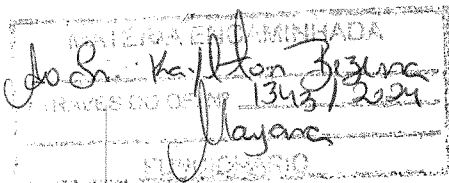 MATÉRIA ENCAMINHADA
Ao Sr. Kaylton Bezerra
ATRAVÉS DO OF. Nº 1343 / 2024
Mayana
FUNCIONÁRIO